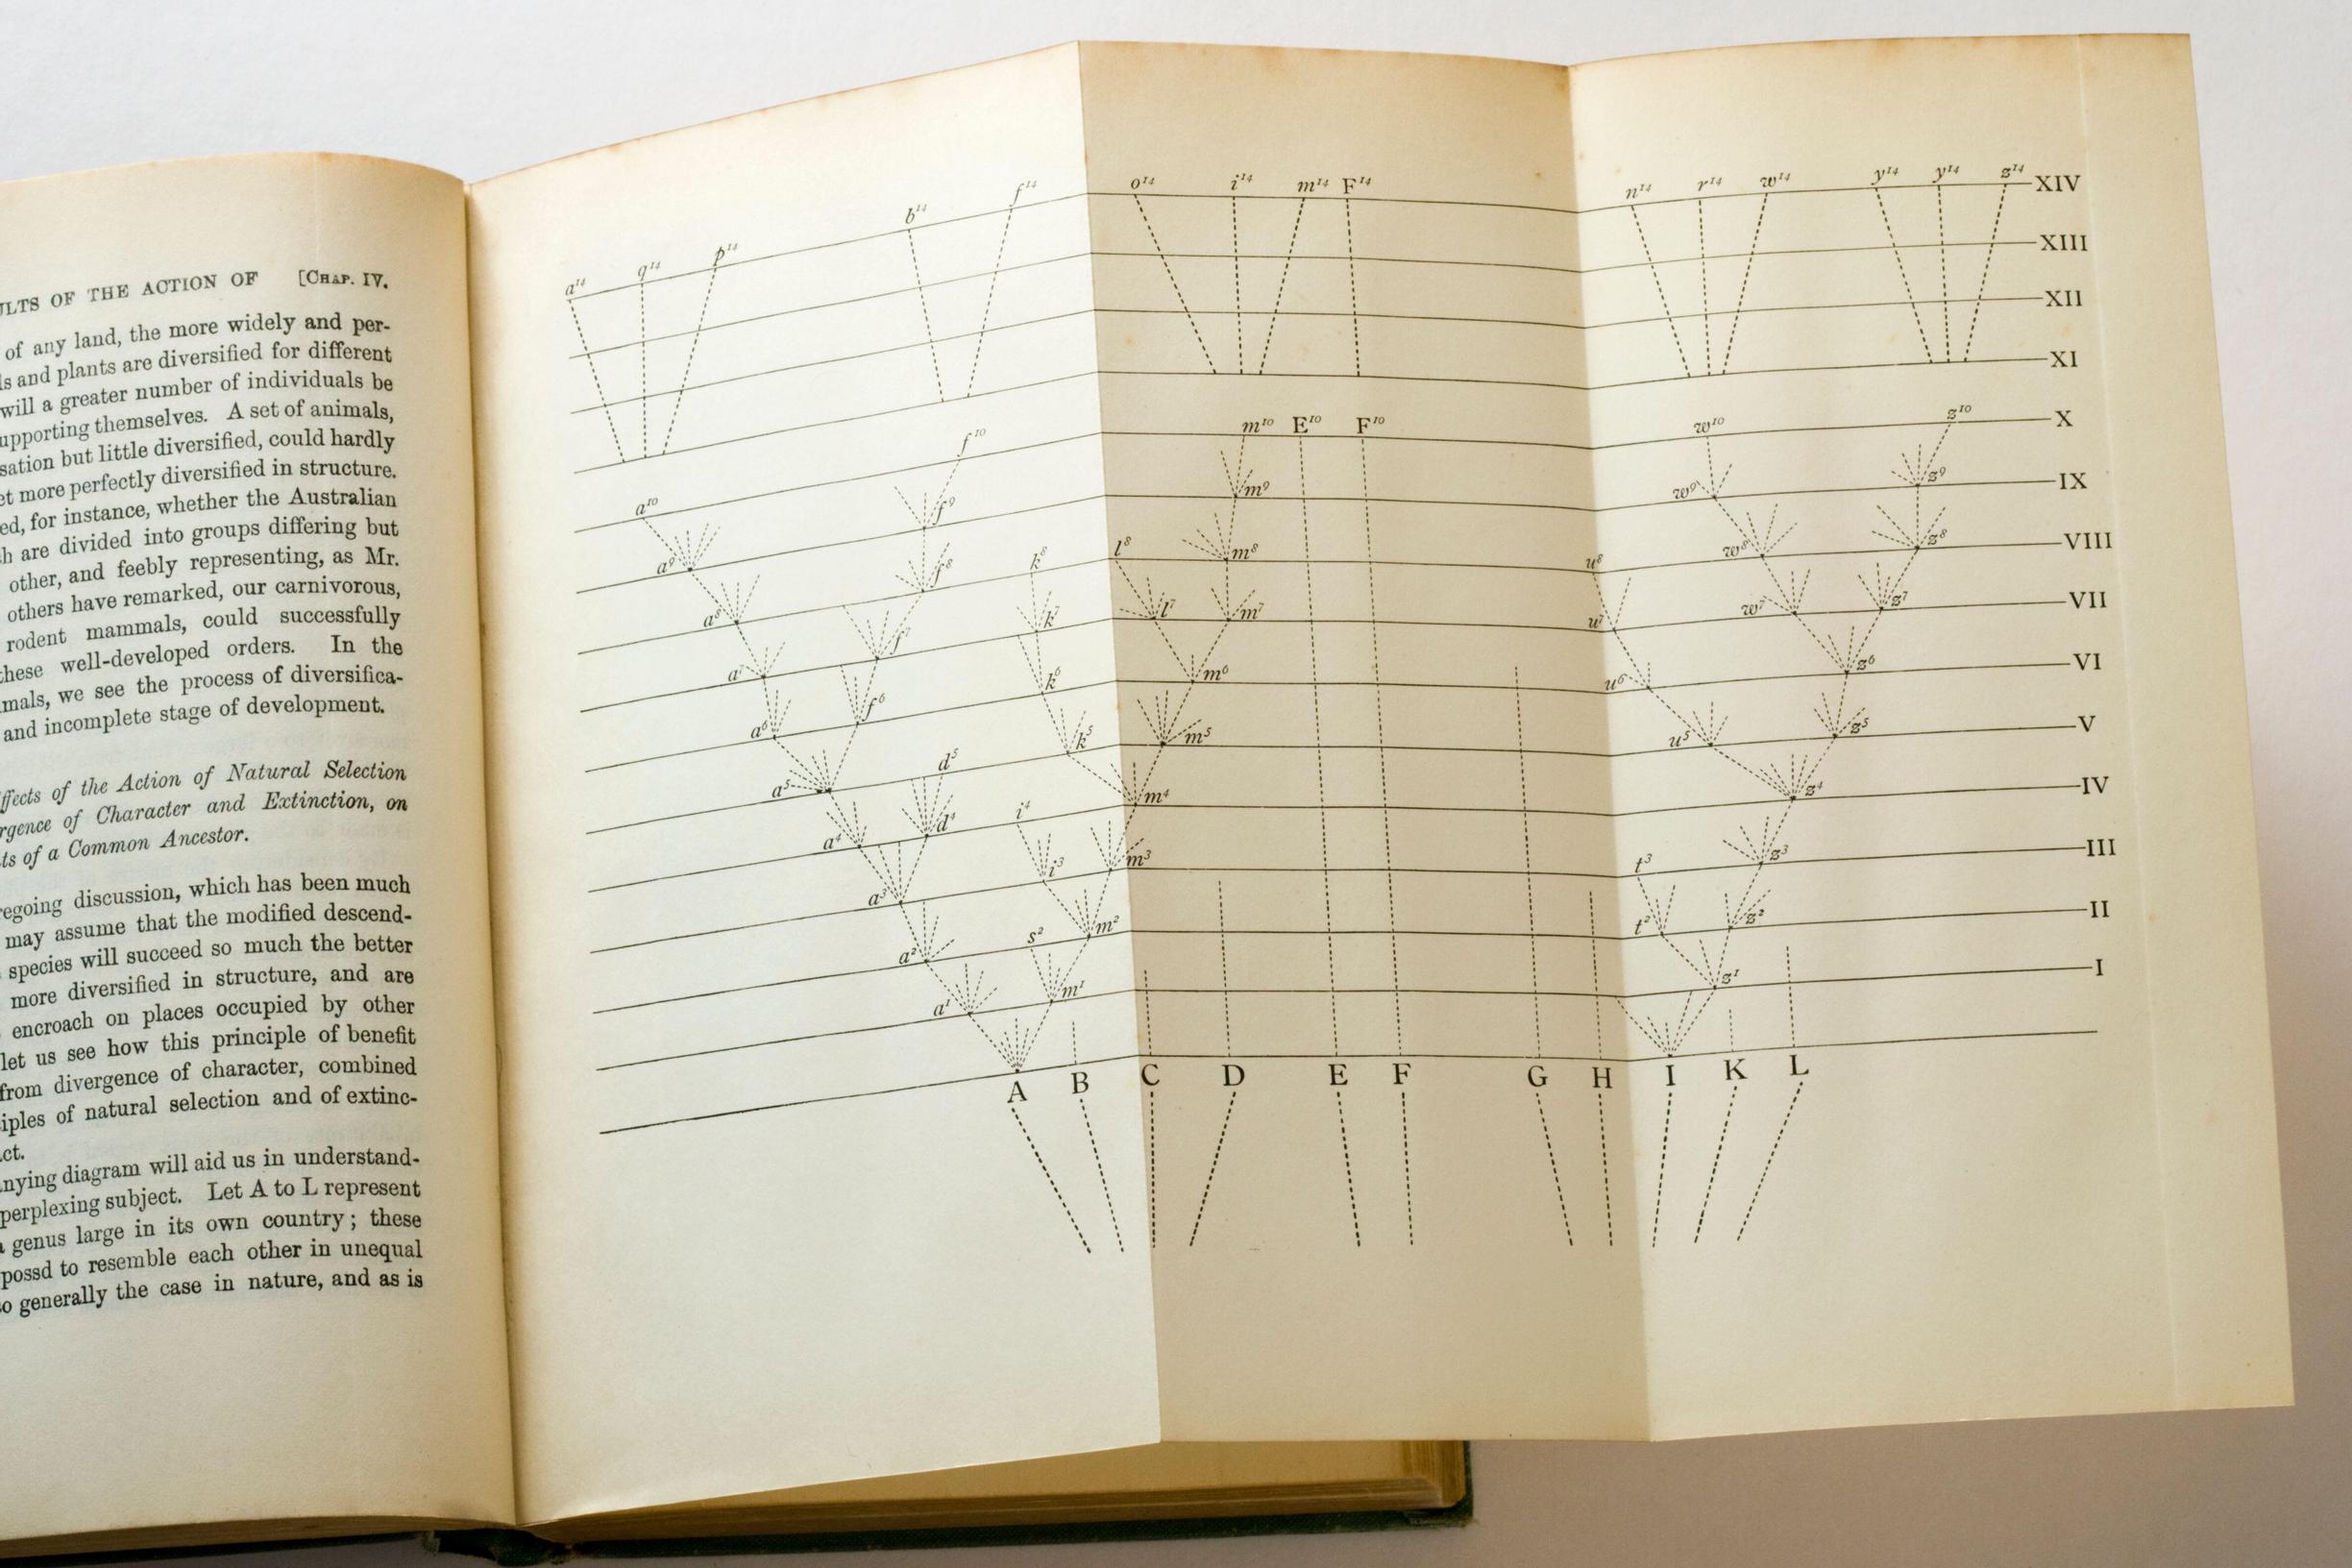 ULTS OF THE ACTION OF [CHAP. IV.
of any land, the more widely and per-
ls and plants are diversified for different
will a greater number of individuals be
upporting themselves. A set of animals,
sation but little diversified, could hardly
et more perfectly diversified in structure.
ed, for instance, whether the Australian
h are divided into groups differing but
other, and feebly representing, as Mr.
others have remarked, our carnivorous,
rodent mammals, could successfully
these well-developed orders. In the
mals, we see the process of diversifica-
and incomplete stage of development.
ffects of the Action of Natural Selection
rgence of Character and Extinction, on
ts of a Common Ancestor.
regoing discussion, which has been much
may assume that the modified descend-
species will succeed so much the better
more diversified in structure, and are
encroach on places occupied by other
let us see how this principle of benefit
from divergence of character, combined
iples of natural selection and of extinc-
ct.
nying diagram will aid us in understand-
perplexing subject. Let A to L represent
a genus large in its own country; these
possd to resemble each other in unequal
o generally the case in nature, and as is
a¹⁴ q¹⁴ p¹⁴ b¹⁴ f¹⁴ o¹⁴ i¹⁴ m¹⁴ F¹⁴ n¹⁴ r¹⁴ w¹⁴ y¹⁴ y¹⁴ z¹⁴ XIV
XIII
XII
XI
a¹⁰ f¹⁰ m¹⁰ E¹⁰ F¹⁰ w¹⁰ z¹⁰ X
a⁹ f⁹ m⁹ w⁹ z⁹ IX
a⁸ f⁸ k⁸ l⁸ m⁸ u⁸ w⁸ z⁸ VIII
a⁷ f⁷ k⁷ l⁷ m⁷ u⁷ w⁷ z⁷ VII
a⁶ f⁶ k⁶ m⁶ u⁶ z⁶ VI
a⁵ d⁵ k⁵ m⁵ u⁵ z⁵ V
a⁴ d⁴ i⁴ m⁴ z⁴ IV
a³ i³ m³ t³ z³ III
a² s² m² t² z² II
a¹ m¹ z¹ I
A B C D E F G H I K L